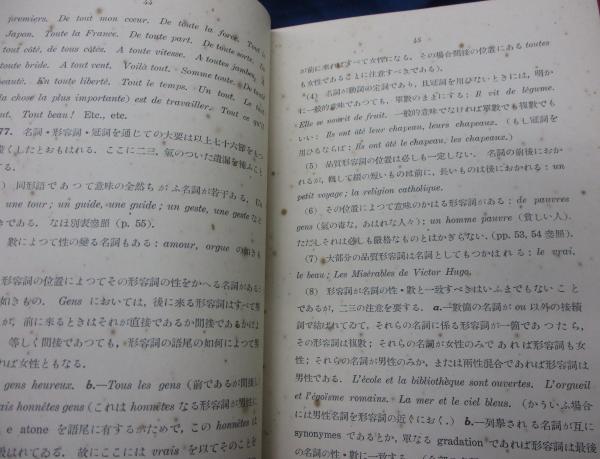 44
premiers. De tout mon cœur. De toute la force. Tout
Japon. Toute la France. De toute part. De toute sorte. Du
tout côté, de tous côtés. A toute vitesse. A toutes jambes.
toute bride. A tout vent. Voilà tout. Somme toute. De toute
beauté. En toute liberté. Tout le temps. Un tout. Le tout
la chose la plus importante) est de travailler. Tout ce qu'il
ut. Tout beau! Etc., etc.
77. 名詞・形容詞・冠詞を通じての大要は以上七十六節をもつ
盡くしたとおもはれる。ここに二三、氣のついた遺漏を補ふこと
する。
) 同形語であつて意味の全然ちがふ名詞が若干ある。
une tour; un guide, une guide; un geste, une geste など
きである. なほ別表參照 (p. 55).
數によつて性の變る名詞もある: amour, orgue の如き
形容詞の位置によつてその形容詞の性をかへる名詞がある
如きもの. Gens においては、後に來る形容詞はすべて男
が、前に來るときはそれが直接であるか間接であるかは
等しく間接であつても、形容詞の語尾の如何によつて男
女性ともなる.
gens heureux. b.—Tous les gens (前であるが間接し
rais honnêtes gens (これは honnêtes なる形容詞が男性に
e atone を語尾に有するがためで、この honnêtes は
はれてゐる. 故にここには vrais を以てそのことを
45
が前に來ればすべて女性になる. その場合間接の位置にある toutes
も女性であることに注意すべきである).
(4) 名詞が動詞の定詞であり、且冠詞を用ひないときには、明か
に一般的意味であつても、單數のままにする: Il vit de légume.
Elle se nourrit de fruit. 一般的意味でなければ單數でも複數でも
いい: Ils ont ôté leur chapeau, leurs chapeaux. (もし冠詞を
用ひるならば: Ils ont ôté le chapeau, les chapeaux.)
(5) 品質形容詞の位置は必しも一定しない. 名詞の前後におか
れるが、概して綴の短いものは前に、長いものは後におかれる: un
petit voyage; la religion catholique.
(6) その位置によつて意味のかはる形容詞がある: de pauvres
gens (氣の毒な, あはれな人々); un homme pauvre (貧しい人).
ただしそれは必しも嚴格なものとはかぎらない. (pp. 53, 54 參照)
(7) 大部分の品質形容詞は名詞としてもつかはれる: le vrai,
le beau; Les Misérables de Victor Hugo.
(8) 形容詞が名詞の性・數と一致すべきはいふまでもないこと
であるが、二三の注意を要する. a.—數箇の名詞が ou 以外の接續
詞で結ばれてゐて、それらの名詞に係る形容詞が一箇であつたら,
その形容詞は複數; それらの名詞が女性のみであれば形容詞も女
性; それらの名詞が男性のみか、または兩性混合であれば形容詞は
男性である. L'école et la bibliothèque sont ouvertes. L'orgueil
et l'égoïsme romains.— La mer et le ciel bleus. (かういふ場合
には男性名詞を形容詞の近くにおく.) b.—列擧される名詞が互に
synonymes であるとか、單なる gradation であれば形容詞は最後
の名詞の性・數と一致する.